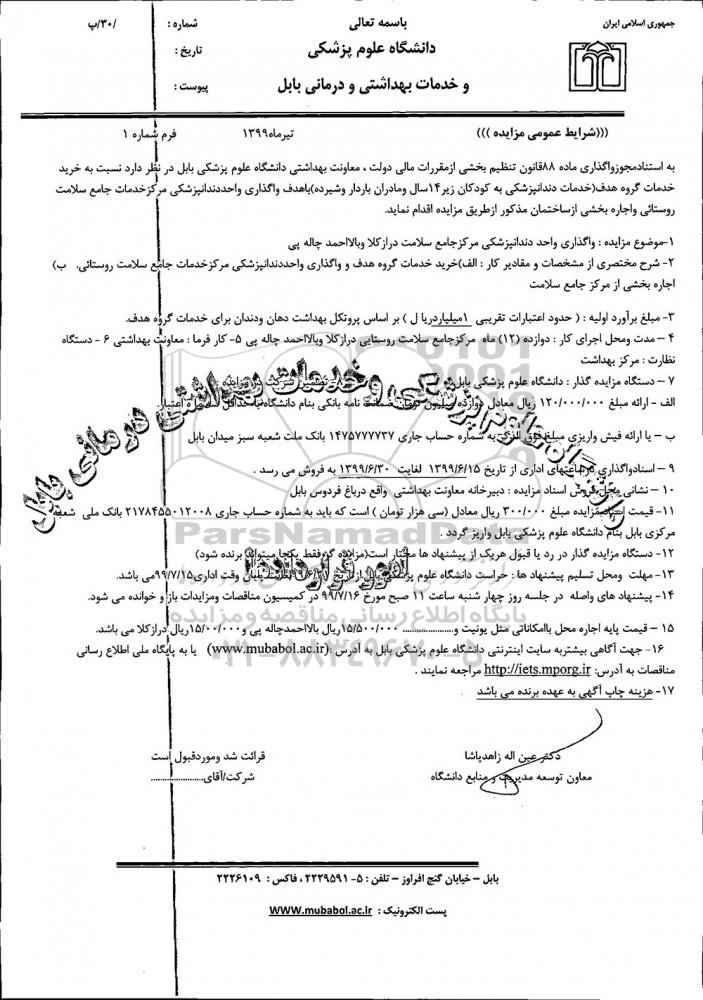 جمهوری اسلامی ایران
باسمه تعالی
دانشگاه علوم پزشکی
و خدمات بهداشتی و درمانی بابل
شماره : /۳۰/پ
تاریخ :
پیوست :
(((شرایط عمومی مزایده ))) تیرماه۱۳۹۹ فرم شماره ۱
به استنادمجوزواگذاری ماده ۸۸قانون تنظیم بخشی ازمقررات مالی دولت ، معاونت بهداشتی دانشگاه علوم پزشکی بابل در نظر دارد نسبت به خرید
خدمات گروه هدف(خدمات دندانپزشکی به کودکان زیر۱۴سال ومادران باردار وشیرده)باهدف واگذاری واحددندانپزشکی مرکزخدمات جامع سلامت
روستائی واجاره بخشی ازساختمان مذکور ازطریق مزایده اقدام نماید.
۱-موضوع مزایده : واگذاری واحد دندانپزشکی مرکزجامع سلامت درازکلا وبالااحمد چاله پی
۲- شرح مختصری از مشخصات و مقادیر کار : الف)خرید خدمات گروه هدف و واگذاری واحددندانپزشکی مرکزخدمات جامع سلامت روستائی. ب)
اجاره بخشی از مرکز جامع سلامت
۳- مبلغ برآورد اولیه : ( حدود اعتبارات تقریبی ۱میلیاردریا ل ) بر اساس پروتکل بهداشت دهان ودندان برای خدمات گروه هدف.
۴ – مدت ومحل اجرای کار : دوازده (۱۲) ماه مرکزجامع سلامت روستایی درازکلا وبالااحمد چاله پی ۵- کار فرما : معاونت بهداشتی ۶ - دستگاه
نظارت : مرکز بهداشت
۷ – دستگاه مزایده گذار : دانشگاه علوم پزشکی بابل
الف - ارائه مبلغ ۱۲۰/۰۰۰/۰۰۰ ریال معادل دوازده میلیون تومان ضمانت نامه بانکی بنام دانشگاه با حداقل سه ماه اعتبار.
ب – یا ارائه فیش واریزی مبلغ فوق الذکر به شماره حساب جاری ۱۴۷۵۷۷۷۷۳۷ بانک ملت شعبه سبز میدان بابل
۹ – اسنادواگذاری درساعتهای اداری از تاریخ ۱۳۹۹/۶/۱۵ لغایت ۱۳۹۹/۶/۳۰ به فروش می رسد .
۱۰ – نشانی محل فروش اسناد مزایده : دبیرخانه معاونت بهداشتی واقع درباغ فردوس بابل
۱۱- قیمت اسناد مزایده مبلغ ۳۰۰/۰۰۰ ریال معادل (سی هزار تومان ) است که باید به شماره حساب جاری ۲۱۷۸۴۵۵۰۱۲۰۰۸ بانک ملی شعبه
مرکزی بابل بنام دانشگاه علوم پزشکی بابل واریز گردد .
۱۲- دستگاه مزایده گذار در رد یا قبول هریک از پیشنهاد ها مختار است(مزایده گر فقط یکجا میتواند برنده شود)
۱۳- مهلت ومحل تسلیم پیشنهاد ها : حراست دانشگاه علوم پزشکی بابل ازتاریخ لغایت پایان وقت اداری۹۹/۷/۱۵می باشد.
۱۴- پیشنهاد های واصله در جلسه روز چهار شنبه ساعت ۱۱ صبح مورخ ۹۹/۷/۱۶ در کمیسیون مناقصات ومزایدات باز و خوانده می شود.
۱۵ – قیمت پایه اجاره محل باامکاناتی مثل یونیت و............... ۱۵/۵۰۰/۰۰۰ریال بالااحمدچاله پی و۱۵/۰۰/۰۰۰ریال درازکلا می باشد.
۱۶- جهت آگاهی بیشتربه سایت اینترنتی دانشگاه علوم پزشکی بابل به آدرس :(www.mubabol.ac.ir) یا به پایگاه ملی اطلاع رسانی
مناقصات به آدرس: http://iets.mporg.ir مراجعه نمایند .
۱۷- هزینه چاپ آگهی به عهده برنده می باشد
دکتر عین اله زاهدپاشا
معاون توسعه مدیریت و منابع دانشگاه
قرائت شد وموردقبول است
شرکت/آقای.....................
بابل – خیابان گنج افروز – تلفن : ۵- ۲۲۲۹۵۹۱ ، فاکس : ۲۲۲۶۱۰۹
پست الکترونیک : WWW.mubabol.ac.ir
دانشگاه علوم پزشکی و خدمات بهداشتی درمانی بابل
امور قراردادها
ParsNamadData
پایگاه اطلاع رسانی مناقصه و مزایده
۰۲۱-۸۸۳۴۹۶۷۰-۵